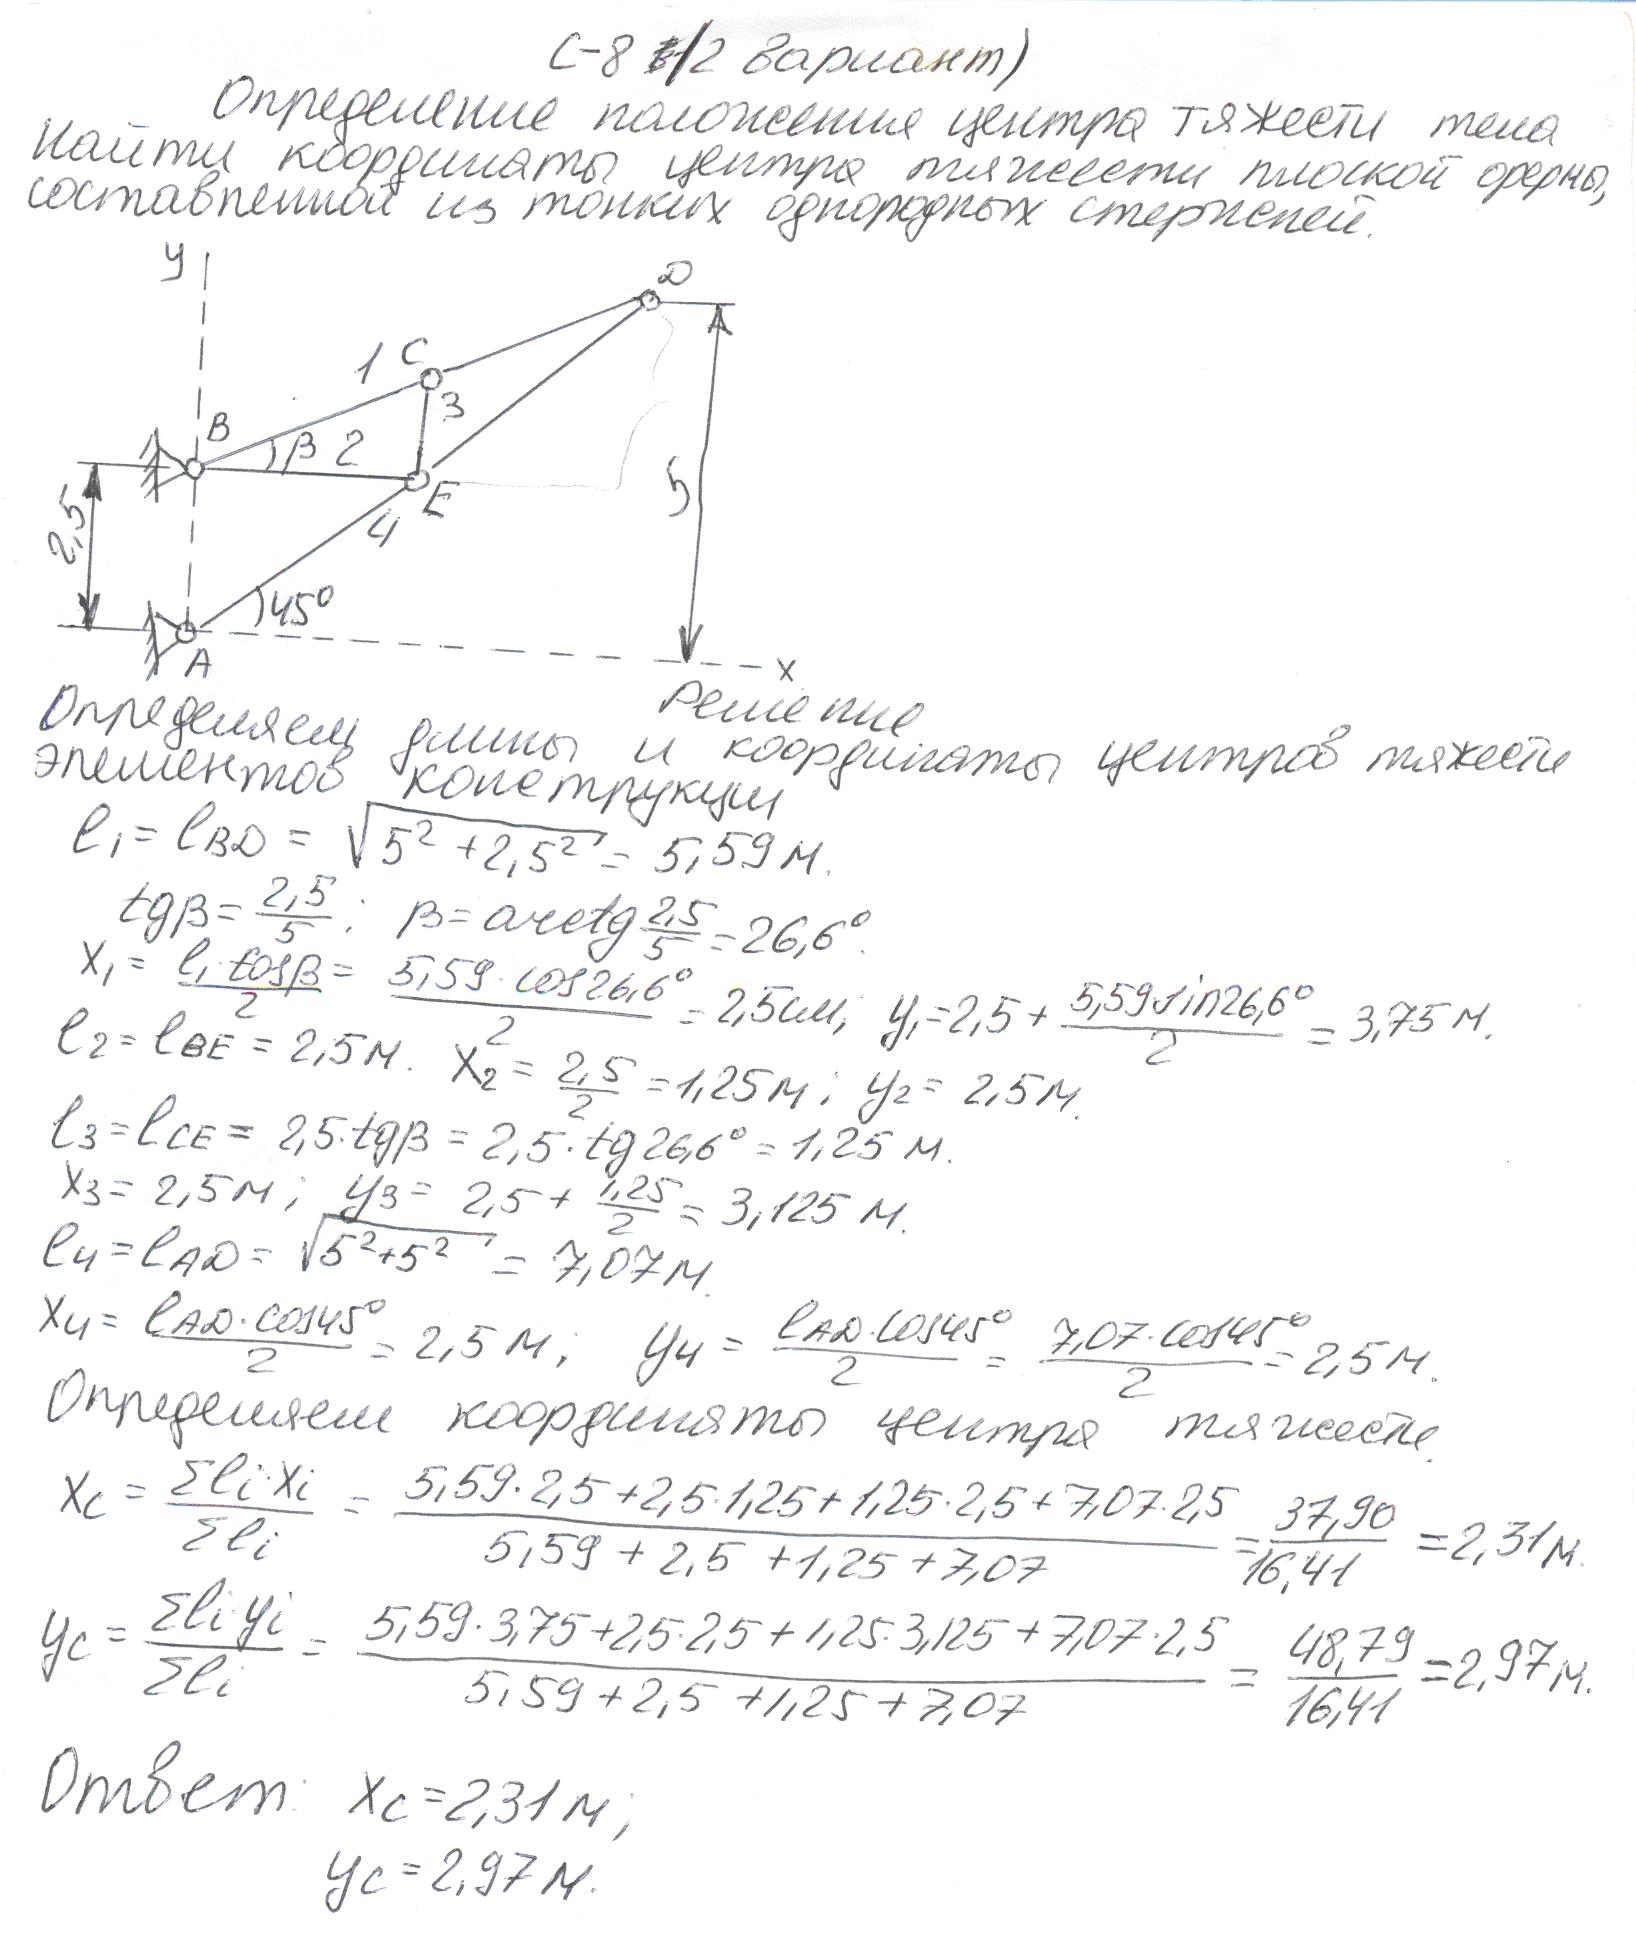 С-8 (2 вариант)
Определение положения центра тяжести тела
Найти координаты центра тяжести плоской фермы,
составленной из тонких однородных стержней.
y
D
C
1
3
B
β 2
E
5
2,5
4
45°
A
x
Решение
Определяем длины и координаты центров тяжести
элементов конструкции
l₁ = l_BD = √(5² + 2,5²) = 5,59 м.
tgβ = 2,5/5 ; β = arctg 2,5/5 = 26,6°.
x₁ = l₁·cosβ/2 = 5,59·cos26,6°/2 = 2,5см; y₁ = 2,5 + 5,59·sin26,6°/2 = 3,75 м.
l₂ = l_BE = 2,5 м. x₂ = 2,5/2 = 1,25 м; y₂ = 2,5 м.
l₃ = l_CE = 2,5·tgβ = 2,5·tg26,6° = 1,25 м.
x₃ = 2,5 м; y₃ = 2,5 + 1,25/2 = 3,125 м.
l₄ = l_AD = √(5²+5²) = 7,07 м.
x₄ = l_AD·cos45°/2 = 2,5 м; y₄ = l_AD·cos45°/2 = 7,07·cos45°/2 = 2,5 м.
Определяем координаты центра тяжести
x_C = Σlᵢ·xᵢ/Σlᵢ = (5,59·2,5 + 2,5·1,25 + 1,25·2,5 + 7,07·2,5)/(5,59 + 2,5 + 1,25 + 7,07) = 37,90/16,41 = 2,31 м.
y_C = Σlᵢ·yᵢ/Σlᵢ = (5,59·3,75 + 2,5·2,5 + 1,25·3,125 + 7,07·2,5)/(5,59 + 2,5 + 1,25 + 7,07) = 48,79/16,41 = 2,97 м.
Ответ: x_C = 2,31 м;
y_C = 2,97 м.